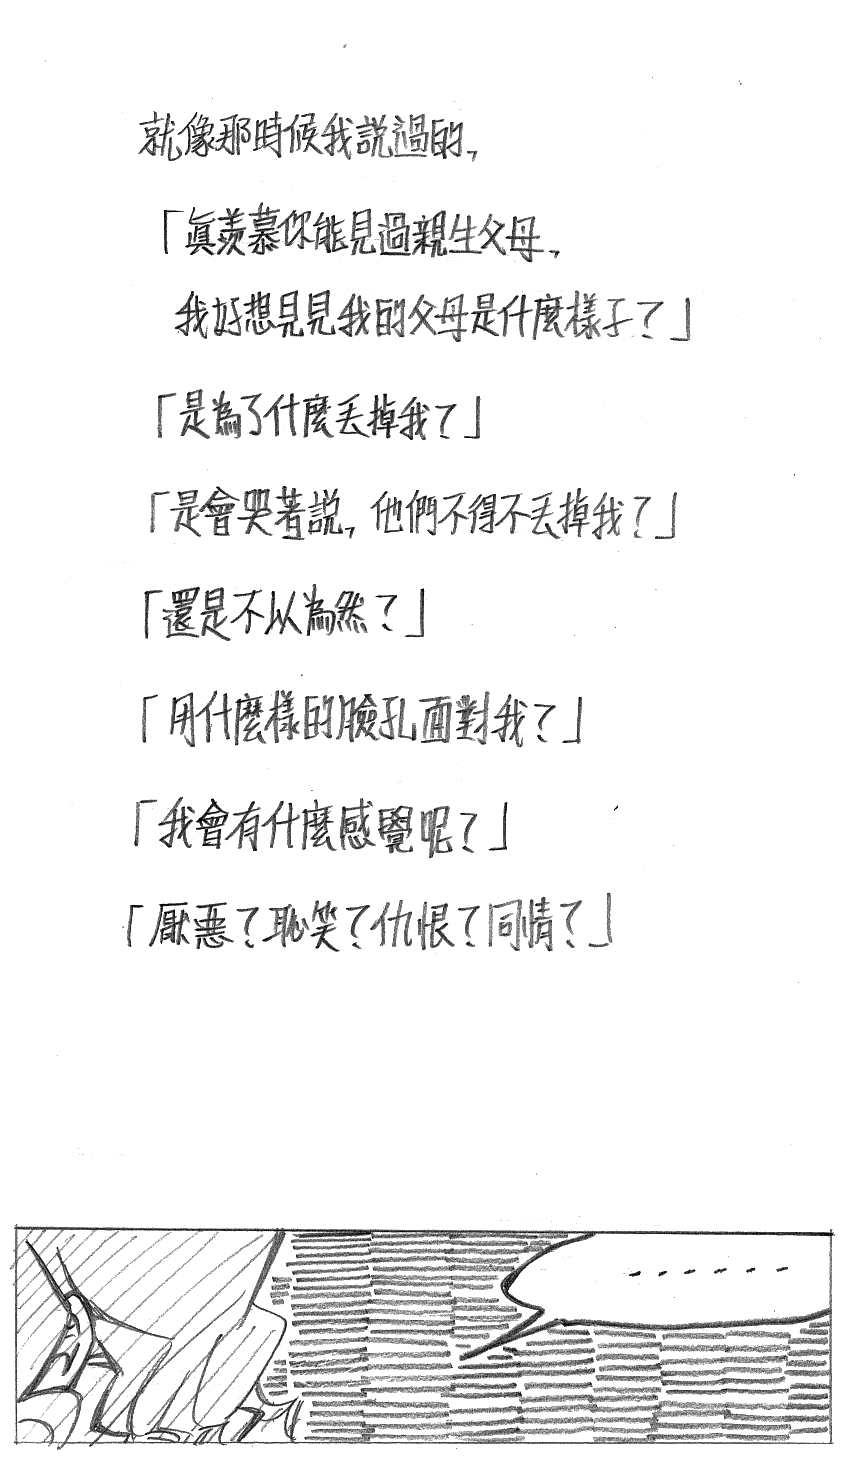 就像那時候我説過的,
「眞羨慕你能見過親生父母,
我好想見見我的父母是什麼樣子?」
「是為了什麼丟掉我?」
「是會哭著説,他們不得不丟掉我?」
「還是不以為然?」
「用什麼樣的臉孔面對我?」
「我會有什麼感覺呢?」
「厭惡?恥笑?仇恨?同情?」
......